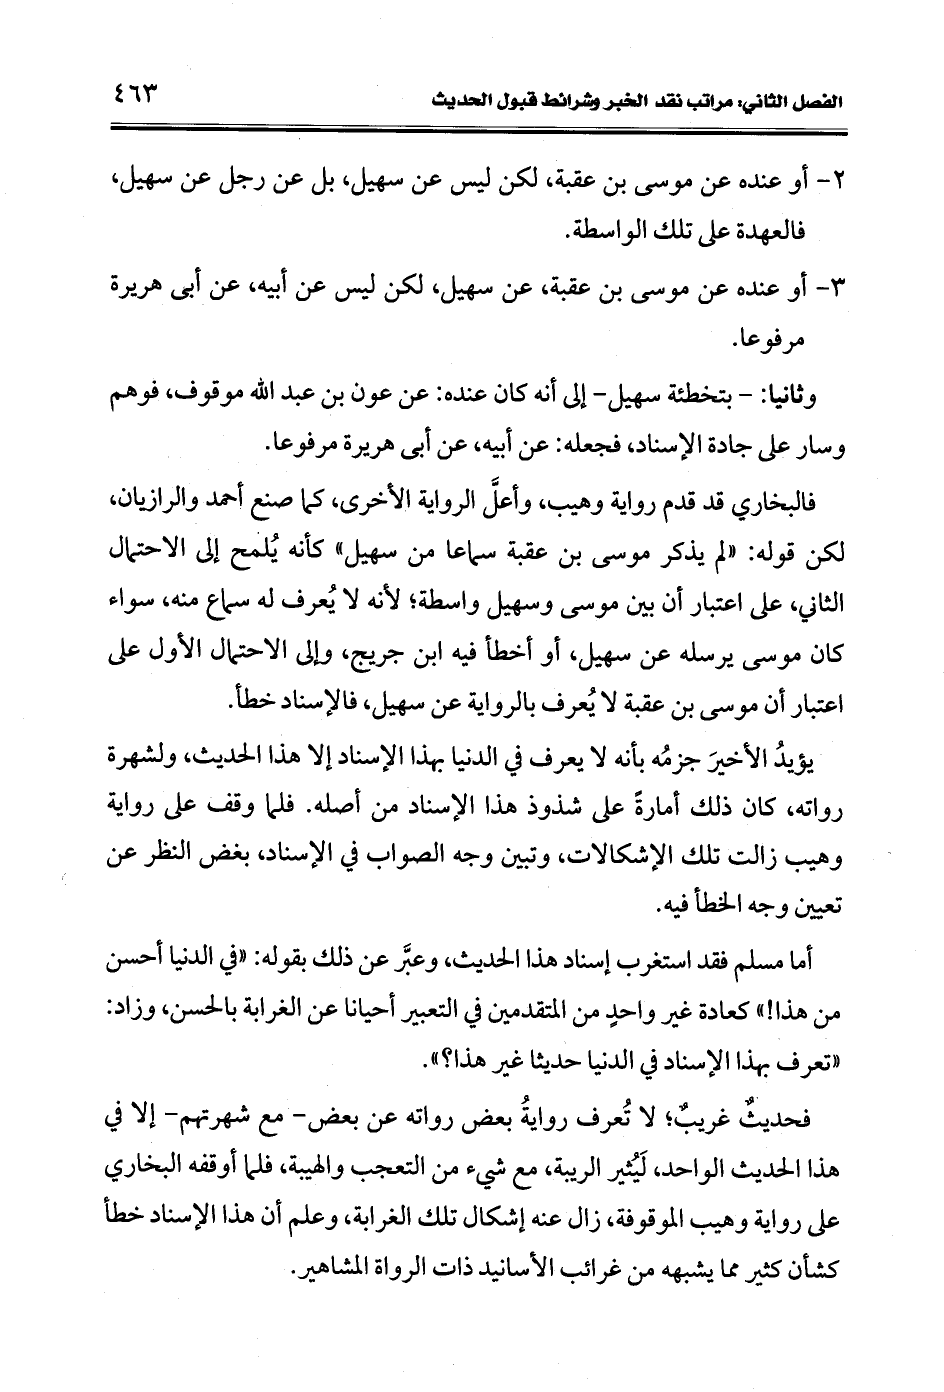 الفصل الثاني: مراتب نقد الخبر وشرائط قبول الحديث
٤٦٣
٢- أو عنده عن موسى بن عقبة، لكن ليس عن سهيل، بل عن رجل عن سهيل،
فالعهدة على تلك الواسطة.
٣- أو عنده عن موسى بن عقبة، عن سهيل، لكن ليس عن أبيه، عن أبى هريرة
مرفوعا.
وثانيا: - بتخطئة سهيل- إلى أنه كان عنده: عن عون بن عبد الله موقوف، فوهم
وسار على جادة الإسناد، فجعله: عن أبيه، عن أبى هريرة مرفوعا.
فالبخاري قد قدم رواية وهيب، وأعلَّ الرواية الأخرى، كما صنع أحمد والرازيان،
لكن قوله: «لم يذكر موسى بن عقبة سماعا من سهيل» كأنه يُلمح إلى الاحتمال
الثاني، على اعتبار أن بين موسى وسهيل واسطة؛ لأنه لا يُعرف له سماع منه، سواء
كان موسى يرسله عن سهيل، أو أخطأ فيه ابن جريج، وإلى الاحتمال الأول على
اعتبار أن موسى بن عقبة لا يُعرف بالرواية عن سهيل، فالإسناد خطأ.
يؤيدُ الأخيرَ جزمُه بأنه لا يعرف في الدنيا بهذا الإسناد إلا هذا الحديث، ولشهرة
رواته، كان ذلك أمارةً على شذوذ هذا الإسناد من أصله. فلما وقف على رواية
وهيب زالت تلك الإشكالات، وتبين وجه الصواب في الإسناد، بغض النظر عن
تعيين وجه الخطأ فيه.
أما مسلم فقد استغرب إسناد هذا الحديث، وعبَّر عن ذلك بقوله: «في الدنيا أحسن
من هذا!» كعادة غير واحدٍ من المتقدمين في التعبير أحيانا عن الغرابة بالحسن، وزاد:
«تعرف بهذا الإسناد في الدنيا حديثا غير هذا؟».
فحديثٌ غريبٌ؛ لا تُعرف روايةُ بعض رواته عن بعض- مع شهرتهم- إلا في
هذا الحديث الواحد، لَيُثير الريبة، مع شيء من التعجب والهيبة، فلما أوقفه البخاري
على رواية وهيب الموقوفة، زال عنه إشكال تلك الغرابة، وعلم أن هذا الإسناد خطأ
كشأن كثير مما يشبهه من غرائب الأسانيد ذات الرواة المشاهير.